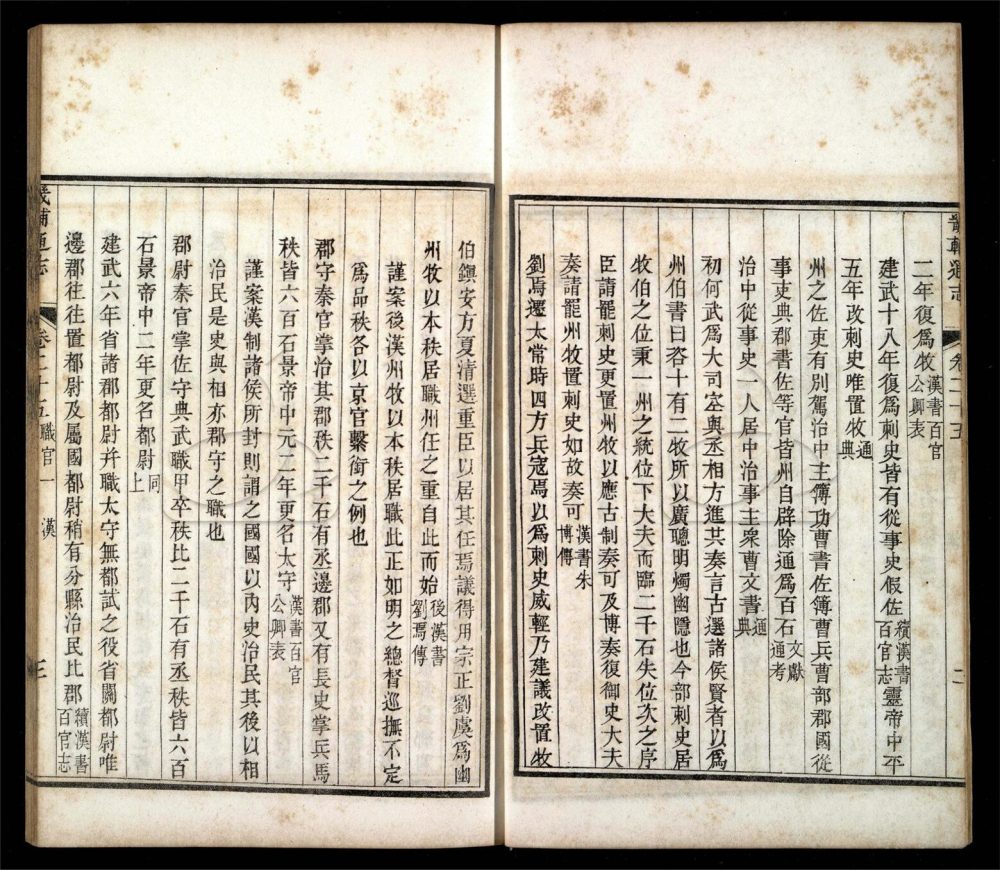 畿輔通志 卷二十五 二
二年復爲牧漢書百官公卿表
建武十八年復爲刺史皆有從事史假佐續漢書百官志靈帝中平
五年改刺史唯置牧通典
州之佐吏有別駕治中主簿功曹書佐簿曹兵曹部郡國從
事史典郡書佐等官皆州自辟除通爲百石文獻通考
治中從事史一人居中治事主衆曹文書通典
初何武爲大司空與丞相方進共奏言古選諸侯賢者以爲
州伯書曰咨十有二牧所以廣聰明燭幽隱也今部刺史居
牧伯之位秉一州之統位下大夫而臨二千石失位次之序
臣請罷刺史更置州牧以應古制奏可及博奏復御史大夫
奏請罷州牧置刺史如故奏可漢書朱博傳
劉焉遷太常時四方兵寇焉以爲刺史威輕乃建議改置牧
伯鎭安方夏清選重臣以居其任焉議得用宗正劉虞爲幽
州牧以本秩居職州任之重自此而始後漢書劉焉傳
謹案後漢州牧以本秩居職此正如明之總督巡撫不定
爲品秩各以京官繫銜之例也
郡守秦官掌治其郡秩二千石有丞邊郡又有長史掌兵馬
秩皆六百石景帝中元二年更名太守漢書百官公卿表
謹案漢制諸侯所封則謂之國國以內史治民其後以相
治民是史與相亦郡守之職也
郡尉秦官掌佐守典武職甲卒秩比二千石有丞秩皆六百
石景帝中二年更名都尉同上
建武六年省諸郡都尉幷職太守無都試之役省關都尉唯
邊郡往往置都尉及屬國都尉稍有分縣治民比郡續漢書百官志
畿輔通志 卷二十五 職官一 漢 三